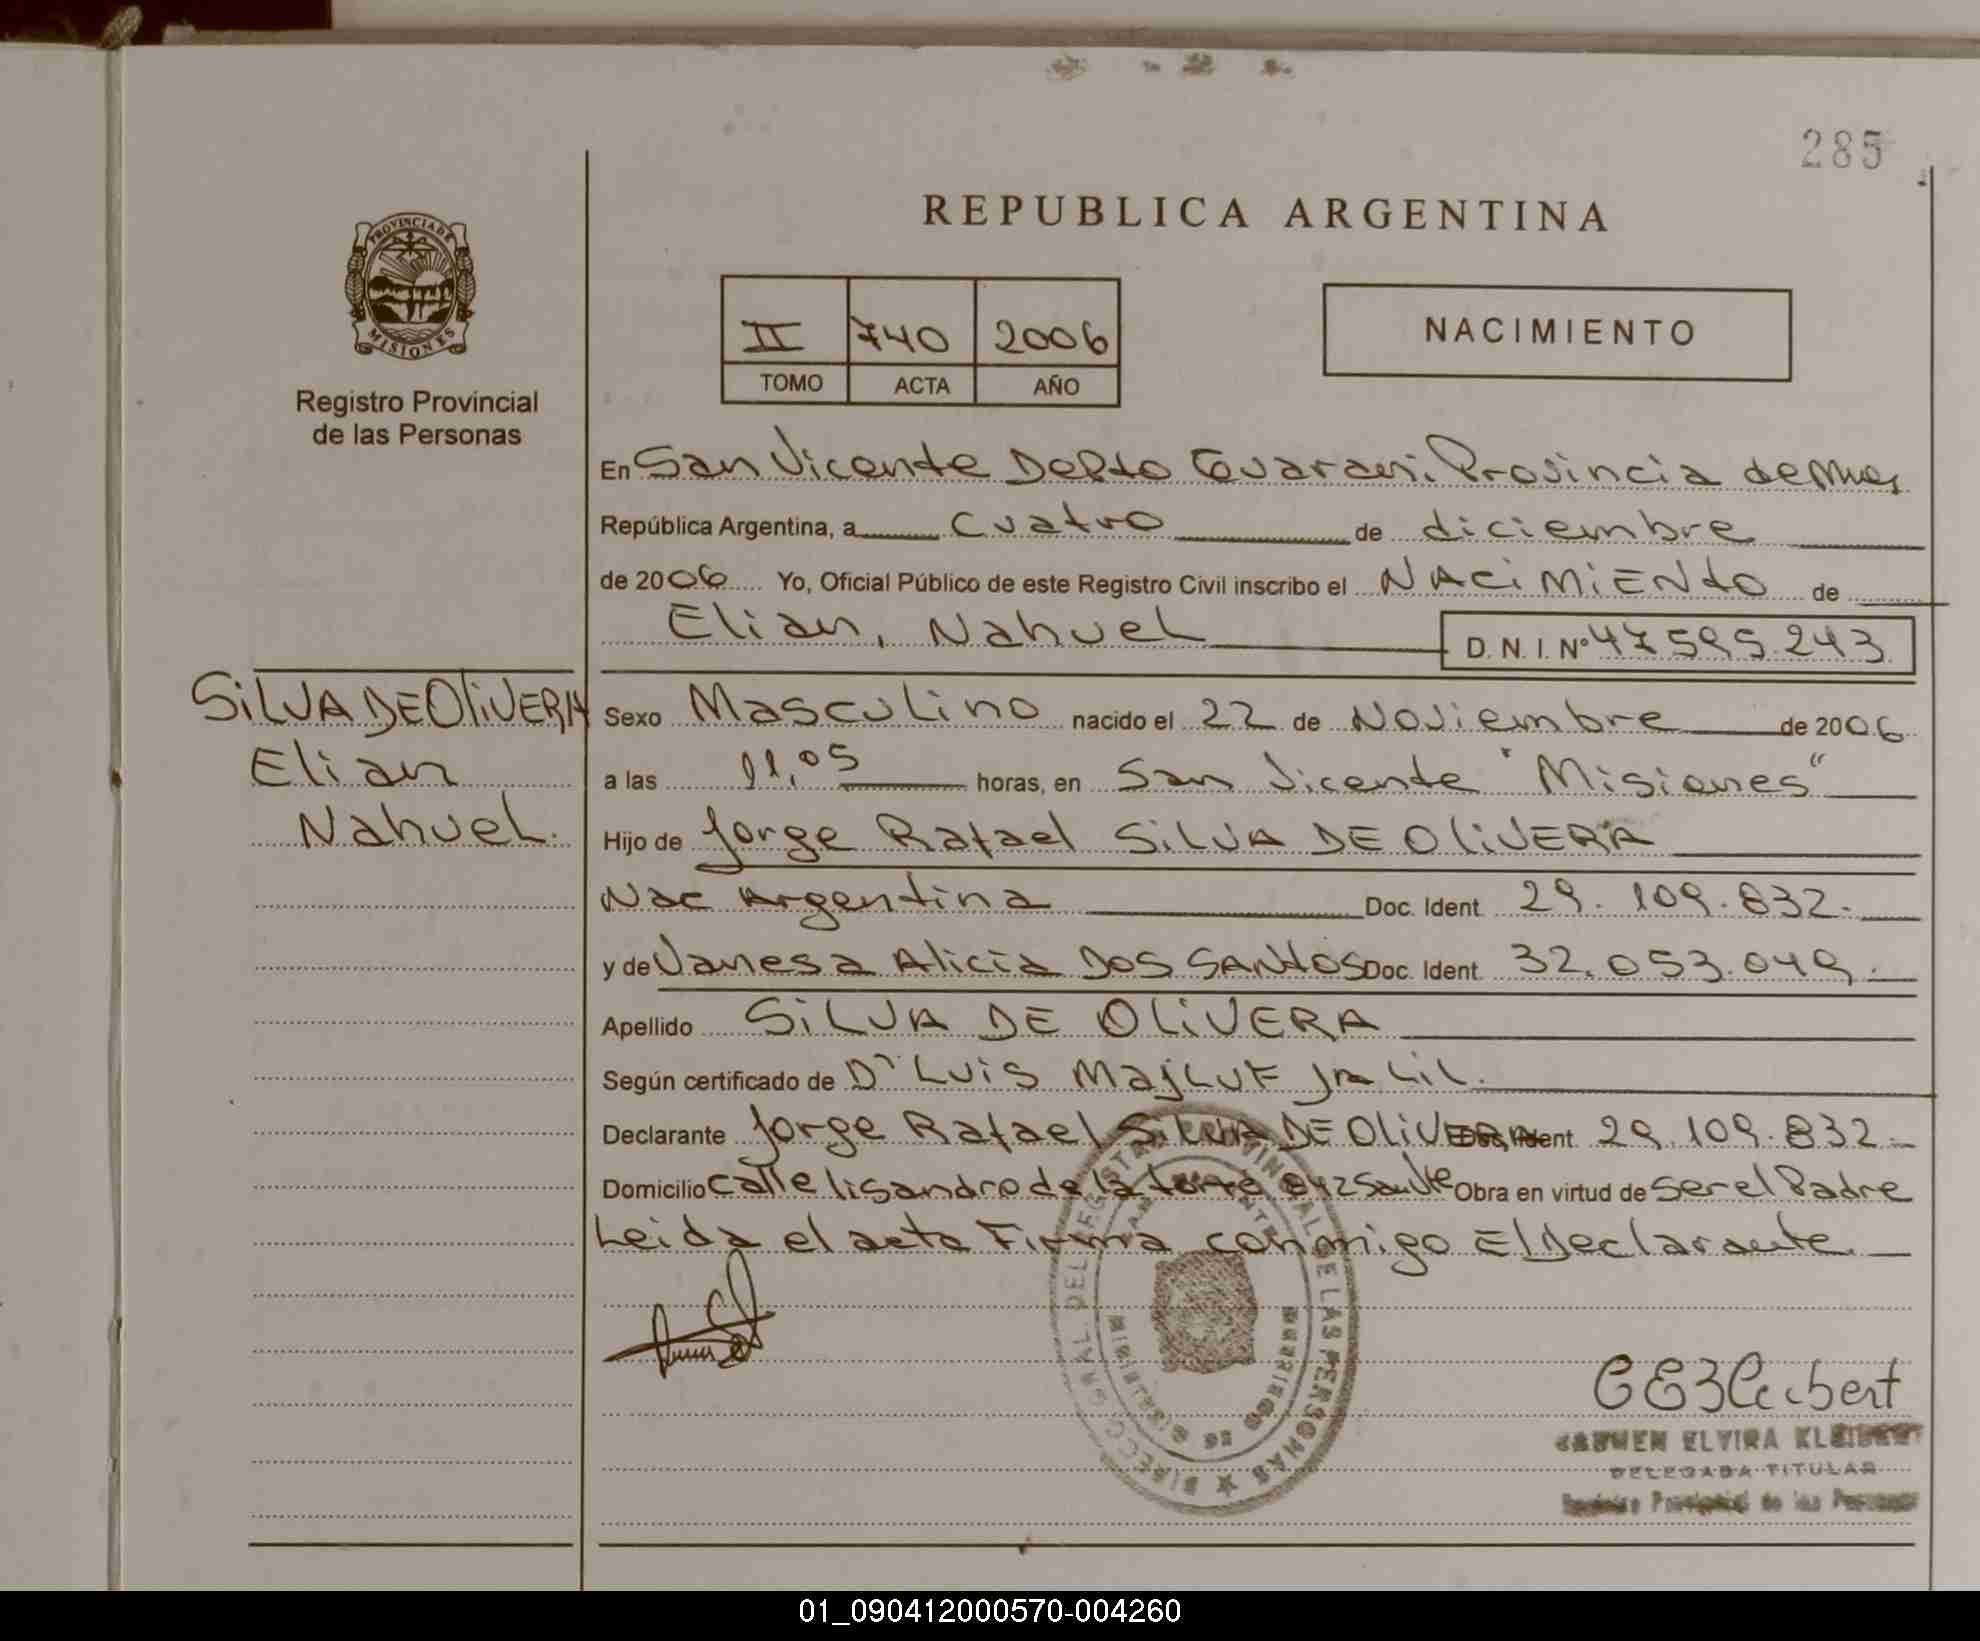 285
REPUBLICA ARGENTINA
PROVINCIA DE
MISIONES
Registro Provincial
de las Personas
II 740 2006
TOMO ACTA AÑO
NACIMIENTO
En San Vicente Depto Guarani. Provincia de Mnes
República Argentina, a cuatro de diciembre
de 2006 Yo, Oficial Público de este Registro Civil inscribo el NACiMiENto de
Elian, Nahuel D.N.I. Nº 47595.243
SiLVA DE OliVERA
Elian
Nahuel.
Sexo Masculino nacido el 22 de Noviembre de 2006
a las 11,05 horas, en San Vicente "Misiones"
Hijo de Jorge Rafael SiLVA DE OliVERA
Nac Argentina Doc. Ident. 29.109.832.
y de Vanesa Alicia DOS SANtOS Doc. Ident. 32.053.049.
Apellido SiLVA DE OLiVERA
Según certificado de Dr Luis Majluf Jalil.
Declarante Jorge Rafael SiLVA DE OliVERA Doc. Ident. 29.109.832
Domicilio calle lisandro de la torre Obra en virtud de ser el Padre
Leida el acta Firma conmigo El Declarante.
DIRECC. GRAL. DEL REGISTRO PROVINCIAL DE LAS PERSONAS
MISIONES
CEKleibert
CARMEN ELVIRA KLEIBERT
DELEGADA TITULAR
Registro Provincial de las Personas
01_090412000570-004260